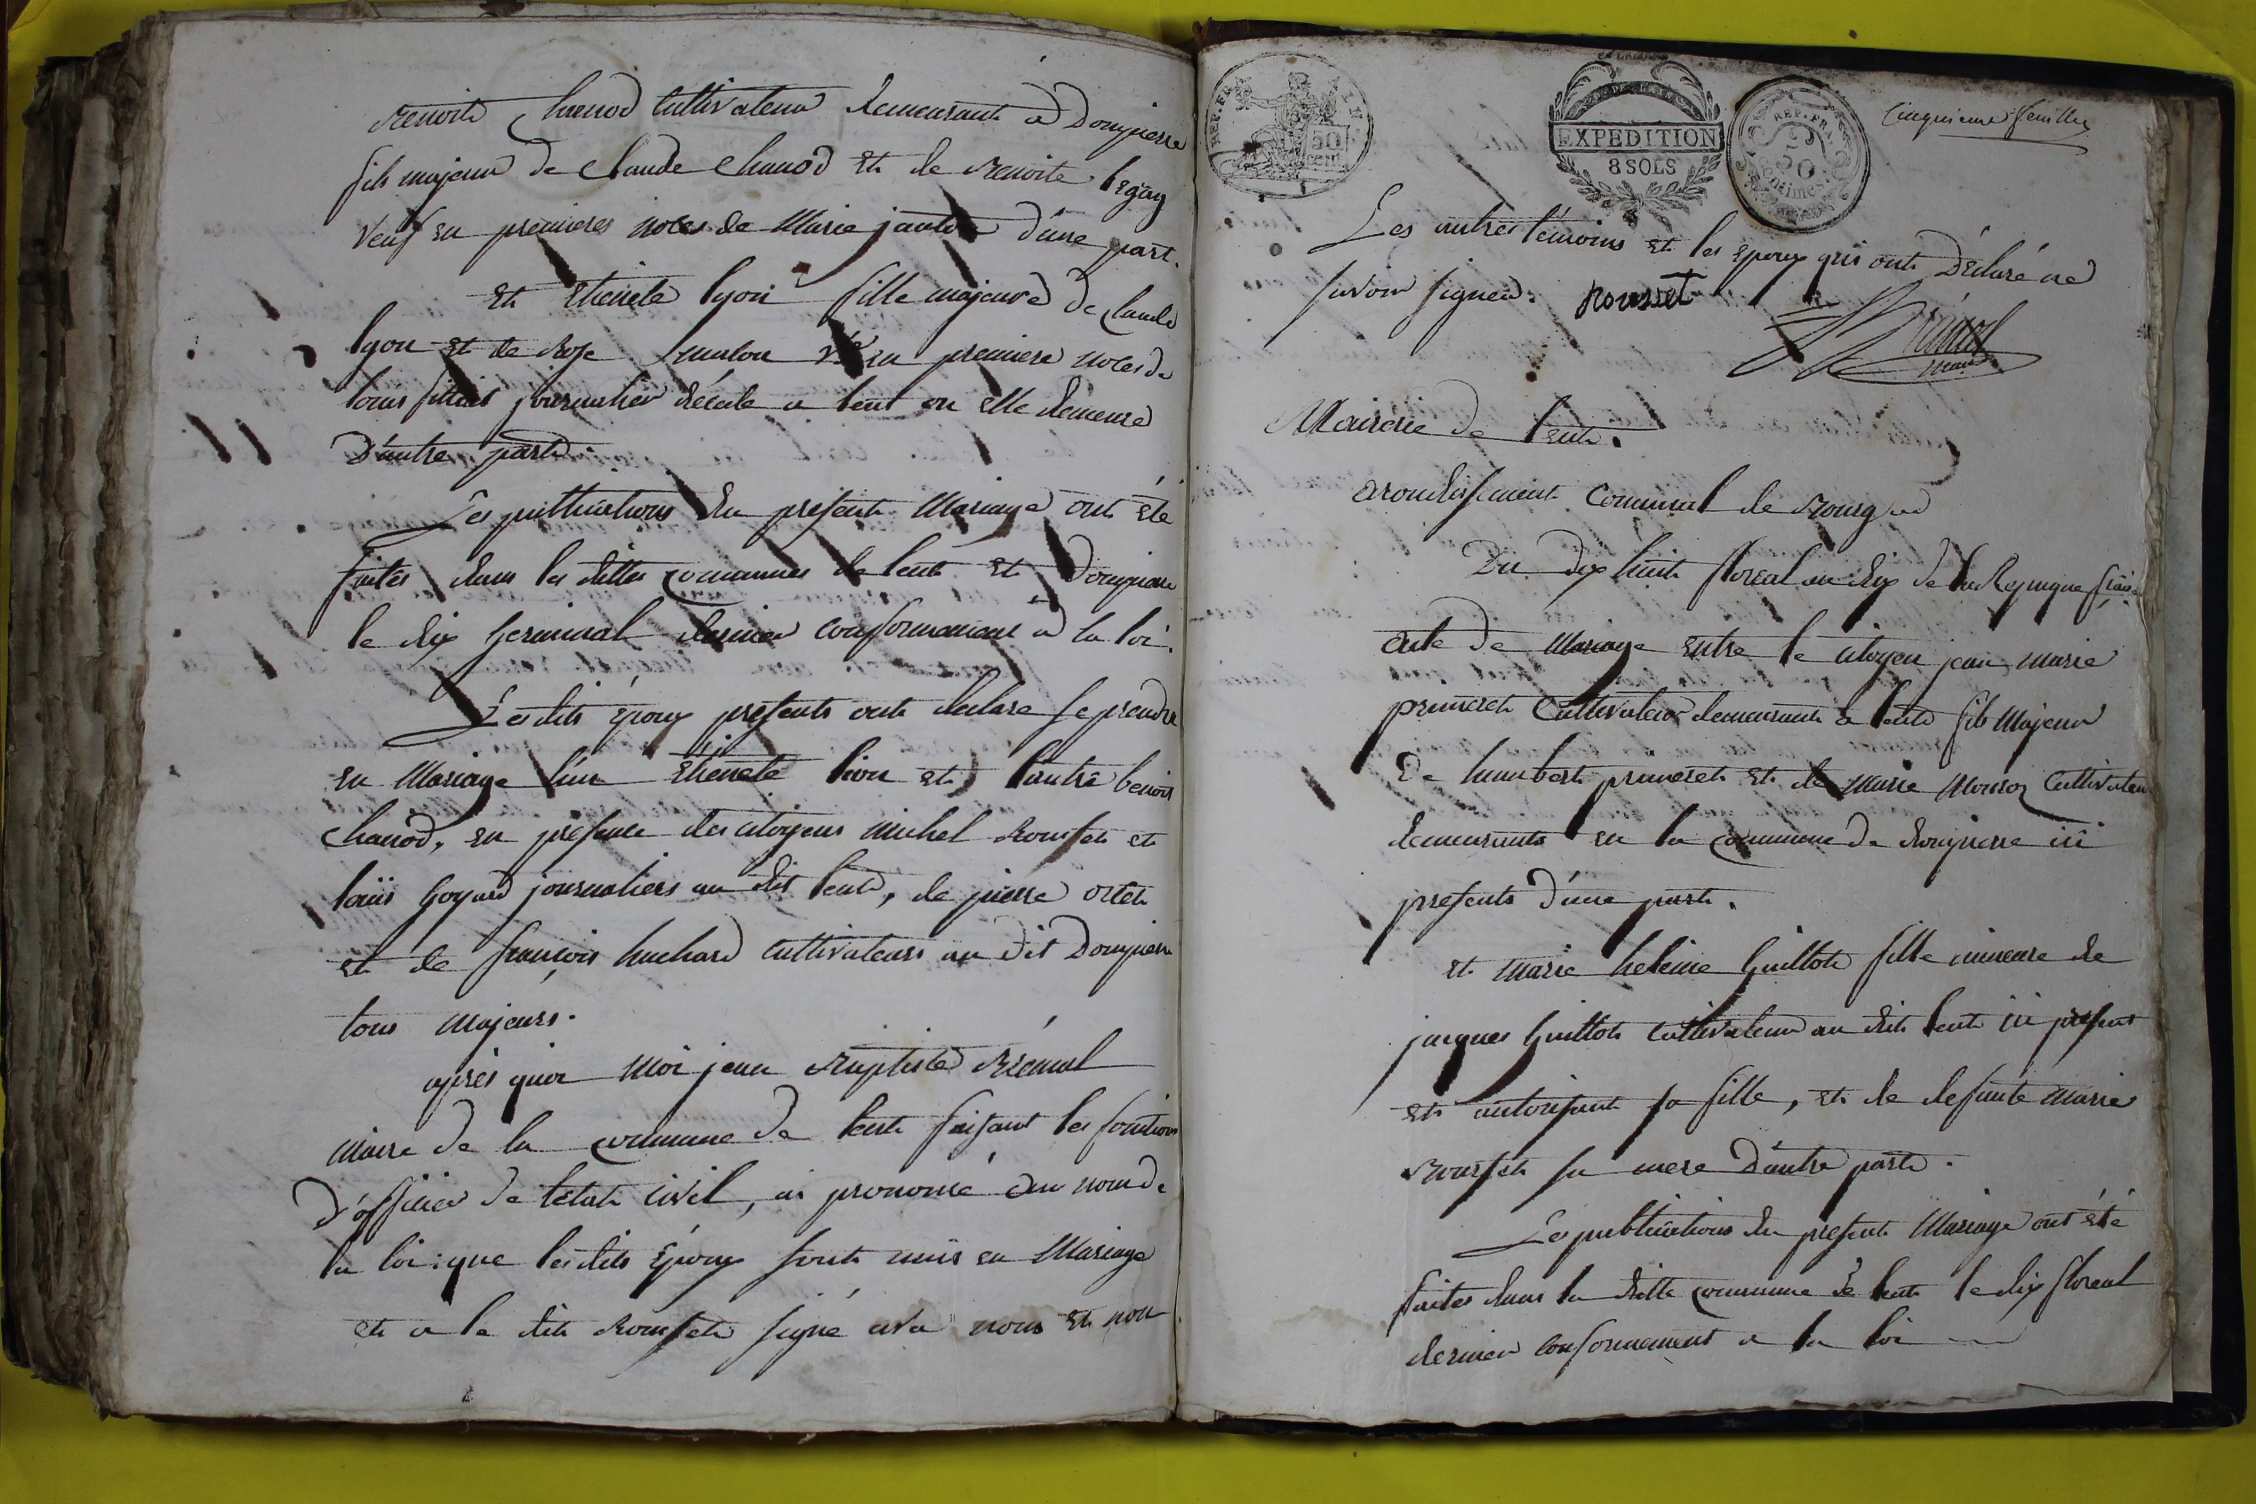 Benoite Chanod Cultivateur demeurant a Dompierre
fils majeur de Claude Chanod et de Benoite begay
Veuf en premieres noces de Marie janton d'une part.
et Etienete lyon fille majeure de Claude
lyon et de Rose en premiere noces de
louis journalier décédé a lent ou elle demeure
D'autre part.
Les publications du present Mariage ont été
faites dans les dittes communes de lent et Dompierre
le dix Germinal dernier conformement a la loi.
Les dits époux presents ont declaré se prendre
en Mariage l'un Etienete lion et l'autre benoit
Chanod, en presence des citoyens michel Rousset et
louis Goyard journaliers au dit lent, de pierre
et de françois huchard cultivateurs au dit Dompierre
tous majeurs.
après quoi Moi jean Baptiste
Maire de la commune de lent faisant les fonctions
d'officier de l'état civil, ai prononcé au nom de
la loi: que les dits Epoux sont unis en Mariage
et a le dit Rousset signé avec nous et non
Cinquieme feuille
REP. FRA.
50 cent
EXPEDITION
8 SOLS
REP. FRA.
50
Centimes
Les autres témoins et les epoux qui ont Déclaré ne
savoir signer. Rousset
maire
Mairerie de lent.
arondissement communal de Bourg
Du dix huit floreal an dix de la Repuique fran.
acte de Mariage entre le citoyen jean marie
primeret Cultivateur demeurant a lent fils Majeur
De humbert primeret et de Marie Cultivateur
demeurants en la commune de dompierre ici
presents d'une part.
et marie heleine Guillot fille mineure de
jacques Guillot cultivateur au dit lent ici present
et autorisant sa fille, et de defunte marie
Rousset sa mere D'autre part.
Les publications du present Mariage ont été
faites dans la ditte commune de lent le dix floreal
dernier conformement a la loi